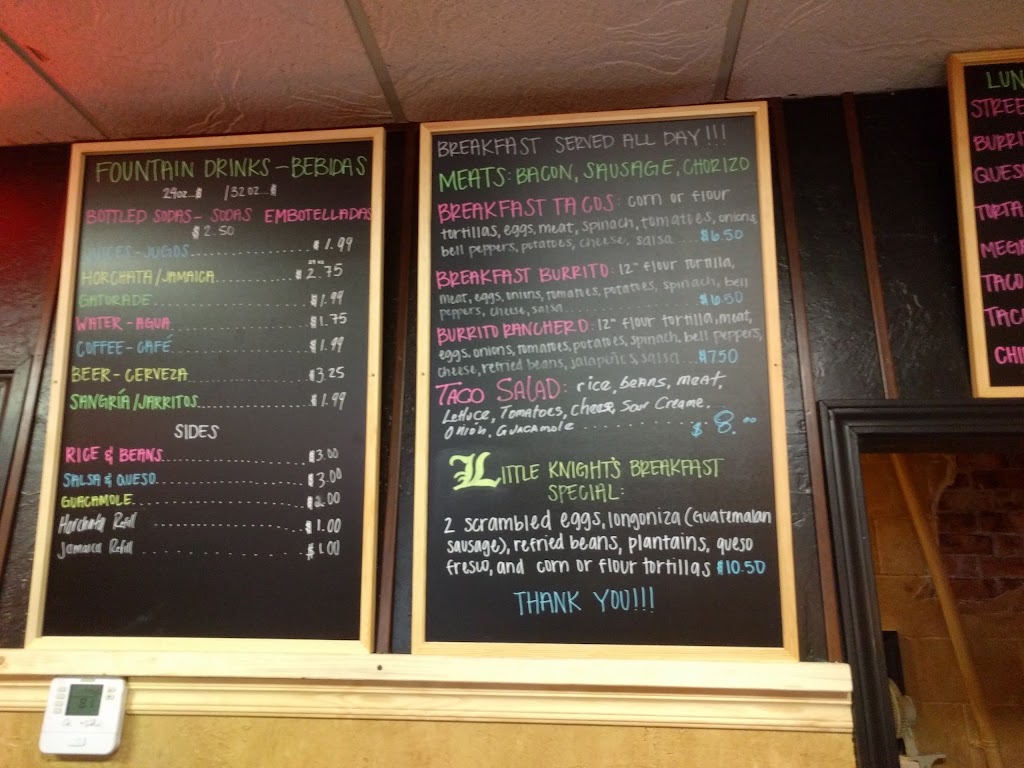 FOUNTAIN DRINKS - BEBIDAS
24oz...$ /32oz...$
BOTTLED SODAS - SODAS EMBOTELLADAS
$2.50
JUICES - JUGOS..................$1.99
HORCHATA/JAMAICA............$2.75
GATORADE.....................$1.99
WATER - AGUA..................$1.75
COFFEE - CAFÉ..................$1.99
BEER - CERVEZA................$3.25
SANGRÍA/JARRITOS.............$1.99
SIDES
RICE & BEANS..................$3.00
SALSA & QUESO................$3.00
GUACAMOLE....................$2.00
Horchata Refill ..................$1.00
Jamaica Refill ..................$1.00
BREAKFAST SERVED ALL DAY!!!
MEATS: BACON, SAUSAGE, CHORIZO
BREAKFAST TACOS: corn or flour
tortillas, eggs, meat, spinach, tomatoes, onions,
bell peppers, potatoes, cheese, salsa....$6.50
BREAKFAST BURRITO: 12" flour tortilla,
meat, eggs, onions, tomatoes, potatoes, spinach, bell
peppers, cheese, salsa..................$6.50
BURRITO RANCHERO: 12" flour tortilla, meat,
eggs, onions, tomatoes, potatoes, spinach, bell peppers,
cheese, refried beans, jalapeños, salsa....$7.50
TACO SALAD: rice, beans, meat,
Lettuce, Tomatoes, cheese, Sour Creame.
Onion, Guacamole ............... $8.00
LITTLE KNIGHT'S BREAKFAST
SPECIAL:
2 scrambled eggs, longoniza (Guatemalan
sausage), refried beans, plantains, queso
fresco, and corn or flour tortillas $10.50
THANK YOU!!!
LUN
STREE
BURRI
QUES
TORTA
MEGA
TACO
TAC
CHI